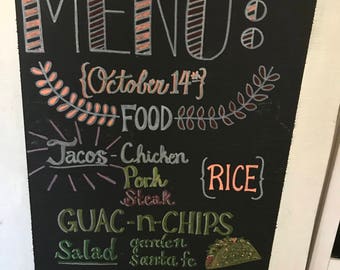 MENU:
{October 14th}
FOOD
Tacos - Chicken
Pork
Steak
{RICE}
GUAC-n-CHIPS
Salad garden
santa fe